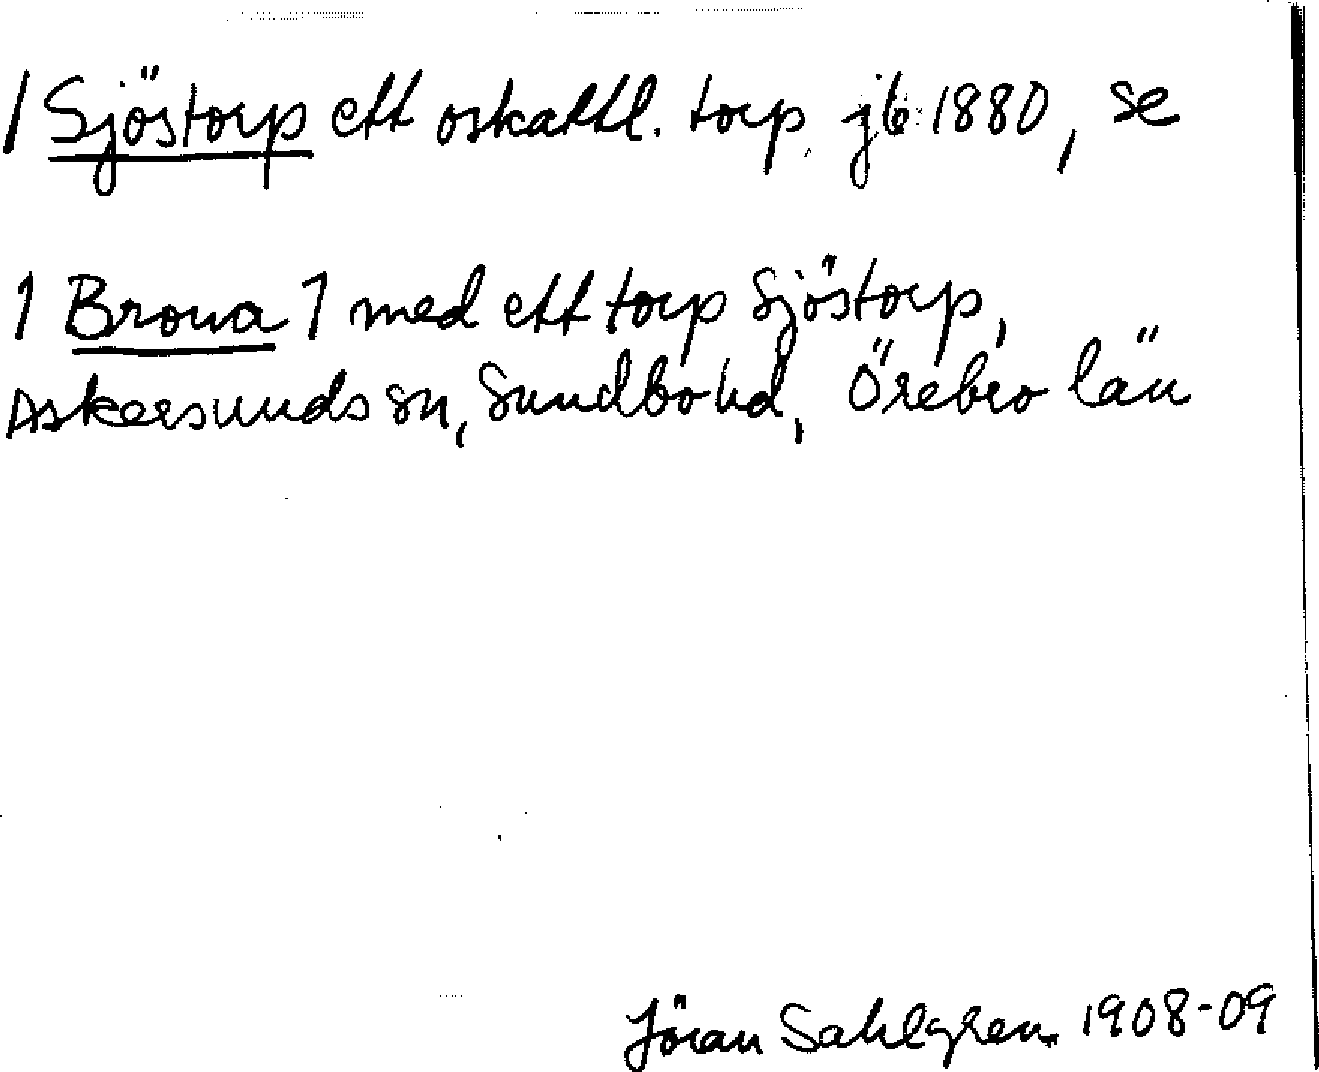 1 Sjöstorp ett oskattl. torp. jb 1880, se
1 Brona 1 med ett torp Sjöstorp,
Askersunds sn, Sundbo hd, Örebro län
Jöran Sahlgren 1908-09